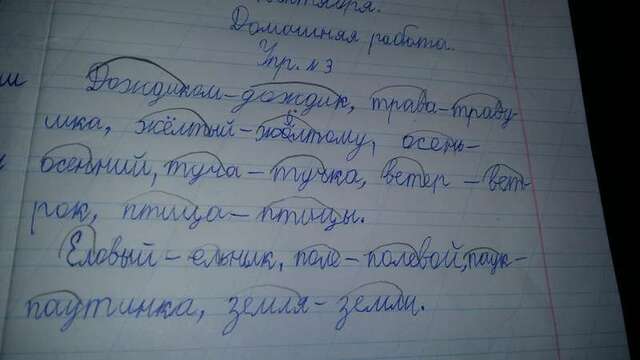 Домашняя работа.
Упр. №3
Дождиком-дождик, трава-траву-
шка, жёлтый-жёлтому, осень-
осенний, туча-тучка, ветер-вет-
рок, птица-птицы.
Еловый-ельник, поле-полевой, паук-
паутинка, земля-земли.